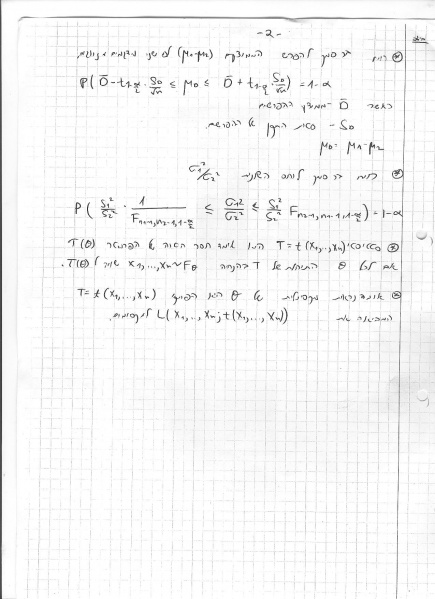 -2-
רווח בר סמך להפרש הממוצעים (μ₁-μ₂) לפי שני מדגמים מזווגים
P( D̄ - t_{1-α/2} · S_D/√n ≤ μ_D ≤ D̄ + t_{1-α/2} · S_D/√n ) = 1-α
כאשר D̄ - ממוצע ההפרשים
S_D - סטיית התקן של ההפרשים
μ_D = μ₁-μ₂
רווח בר סמך ליחס השונויות σ₁²/σ₂²
P( S₁²/S₂² · 1/F_{n₁-1,n₂-1,1-α/2} ≤ σ₁²/σ₂² ≤ S₁²/S₂² F_{n₂-1,n₁-1,1-α/2} ) = 1-α
סטטיסטי T = t(x₁,..,xₙ) הינו אומד חסר הטיה של הפרמטר T(θ)
אם לכל θ התוחלת של T בהנחה x₁,...,xₙ~F_θ שווה ל T(θ).
אומד נראות מקסימלית של θ הינו הפונק' T = t(x₁,...,xₙ)
המביאה את L(x₁,..,xₙ; t(x₁,...,xₙ)) למקסימום.